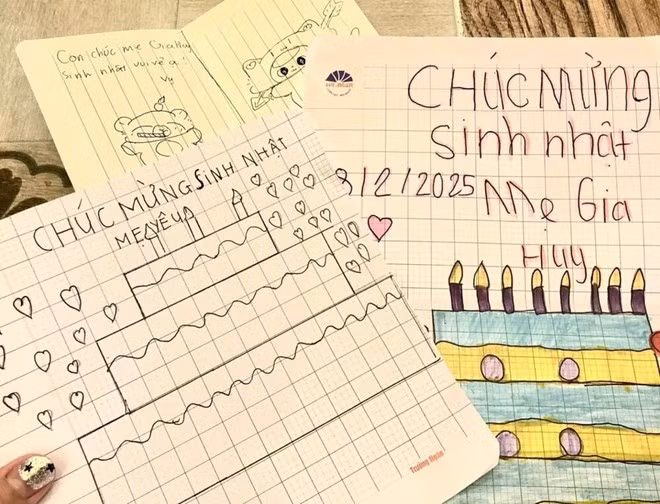 Con chúc mẹ Gia Huy
sinh nhật vui vẻ ạ!
CHÚC MỪNG SINH NHẬT
MẸ YÊU
CHÚC MỪNG
Sinh nhật
8/2/2025 Mẹ Gia
Huy
Trường Ngân